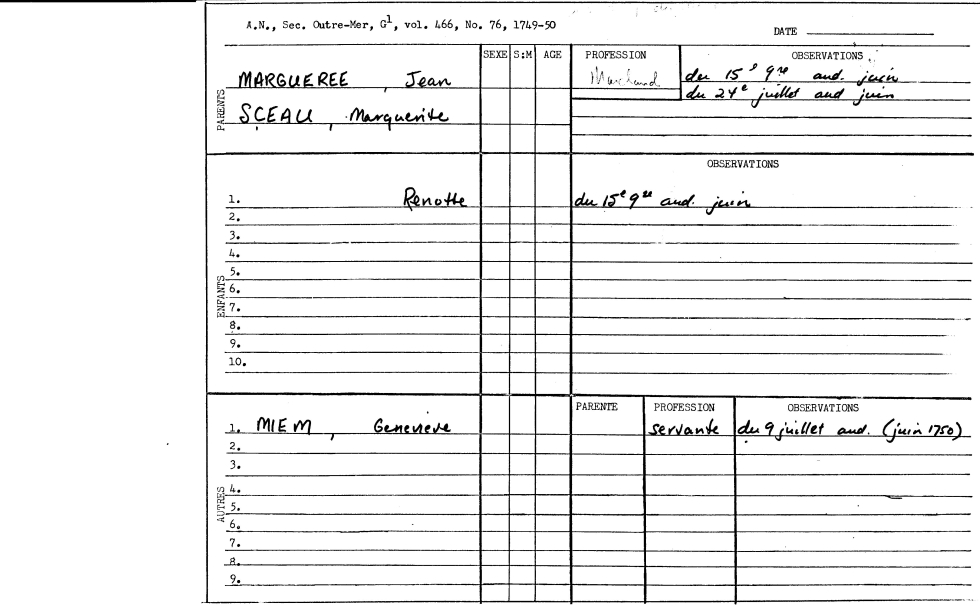 A.N., Sec. Outre-Mer, G1, vol. 466, No. 76, 1749-50
DATE
SEXE S:M AGE PROFESSION OBSERVATIONS
PARENTS
MARGUEREE , Jean Marchand du 15e 9re aud. juin
du 24e juillet aud juin
SCEAU , Marguerite
OBSERVATIONS
ENFANTS
1. Renotte du 15e 9re aud. juin
2.
3.
4.
5.
6.
7.
8.
9.
10.
PARENTE PROFESSION OBSERVATIONS
AUTRES
1. MIEM , Genevieve servante du 9 juillet aud. (juin 1750)
2.
3.
4.
5.
6.
7.
8.
9.